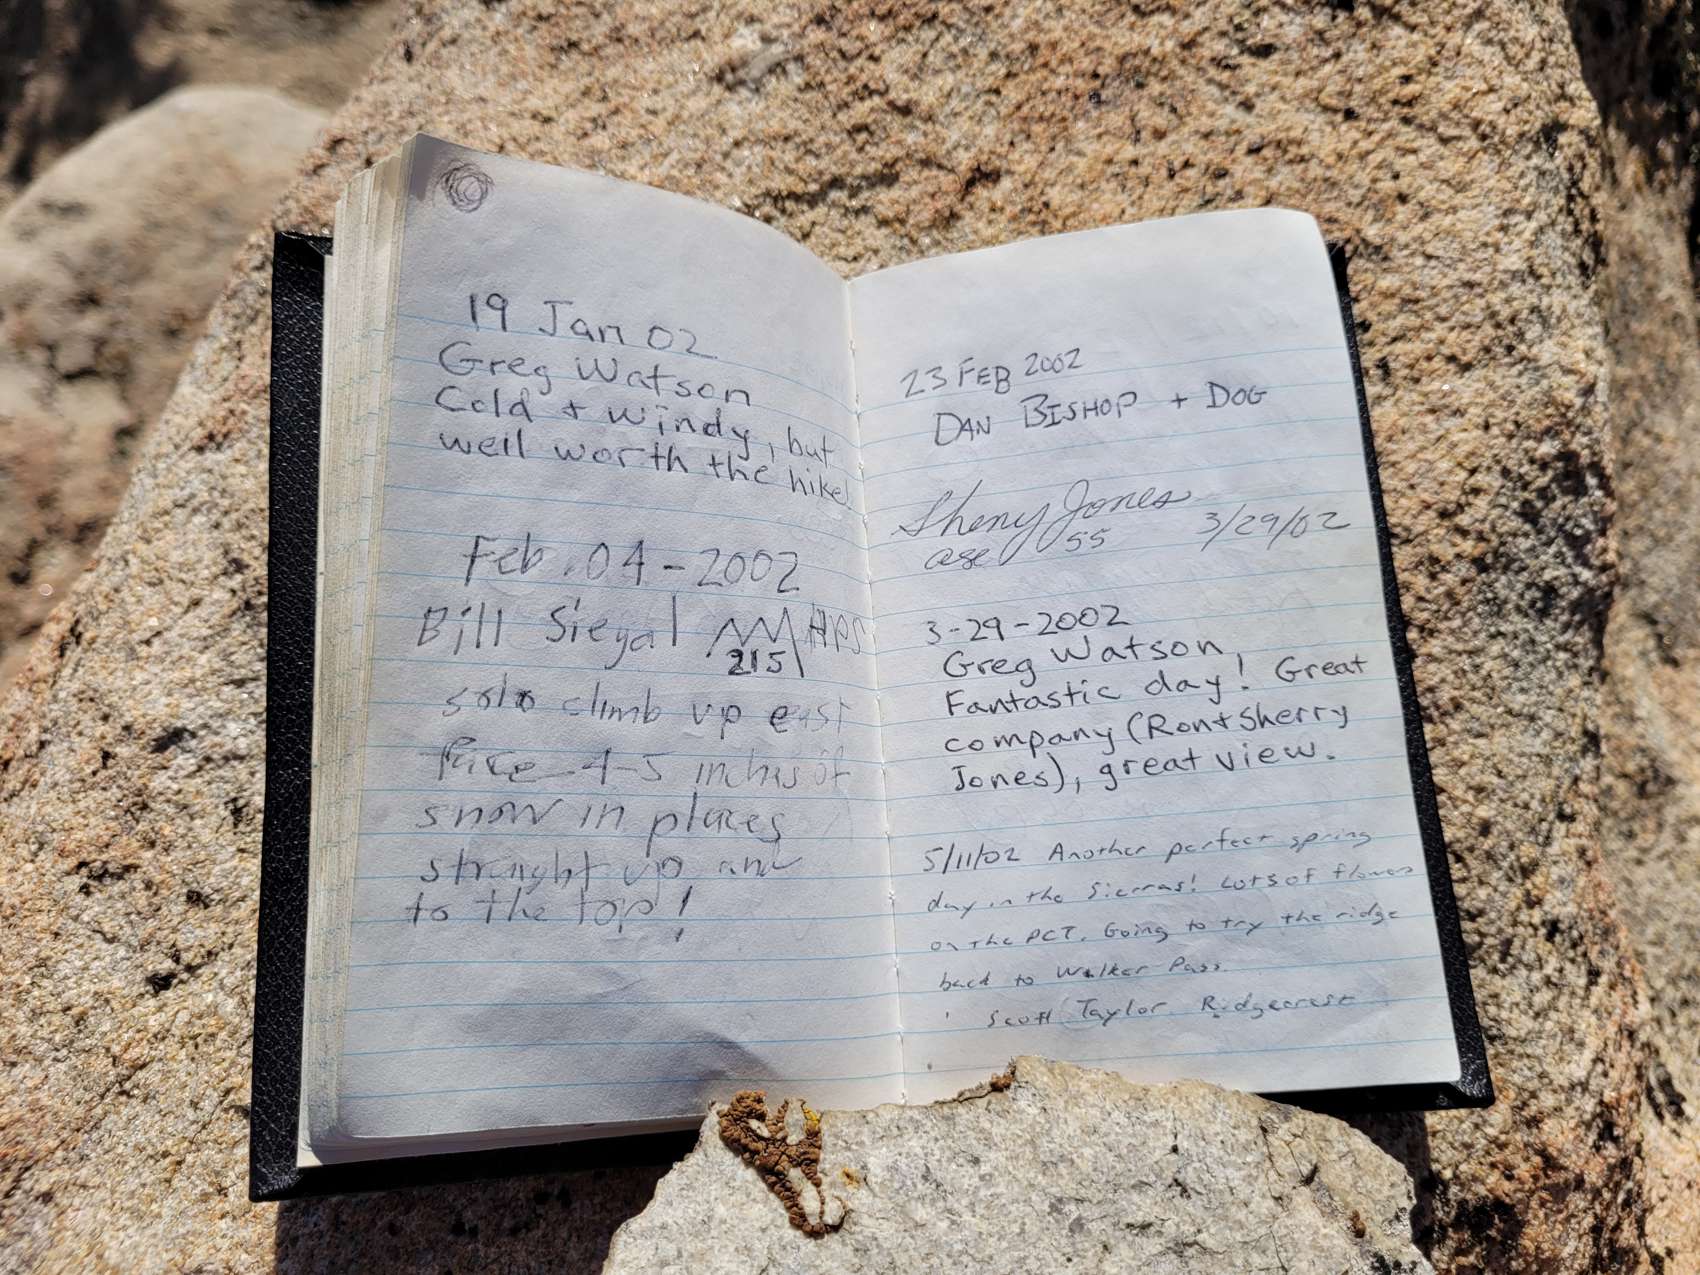 19 Jan 02
Greg Watson
Cold + windy, but
well worth the hike!
Feb. 04-2002
Bill Siegal HPS
215
solo climb up east
face 4-5 inches of
snow in places
straight up and
to the top!
23 FEB 2002
DAN BISHOP + DOG
Sherry Jones 3/29/02
age 55
3-29-2002
Greg Watson,
Fantastic day! Great
company (Ron+Sherry
Jones), great view.
5/11/02 Another perfect spring
day in the Sierras! Lots of flowers
on the PCT. Going to try the ridge
back to Walker Pass.
Scott Taylor Ridgecrest